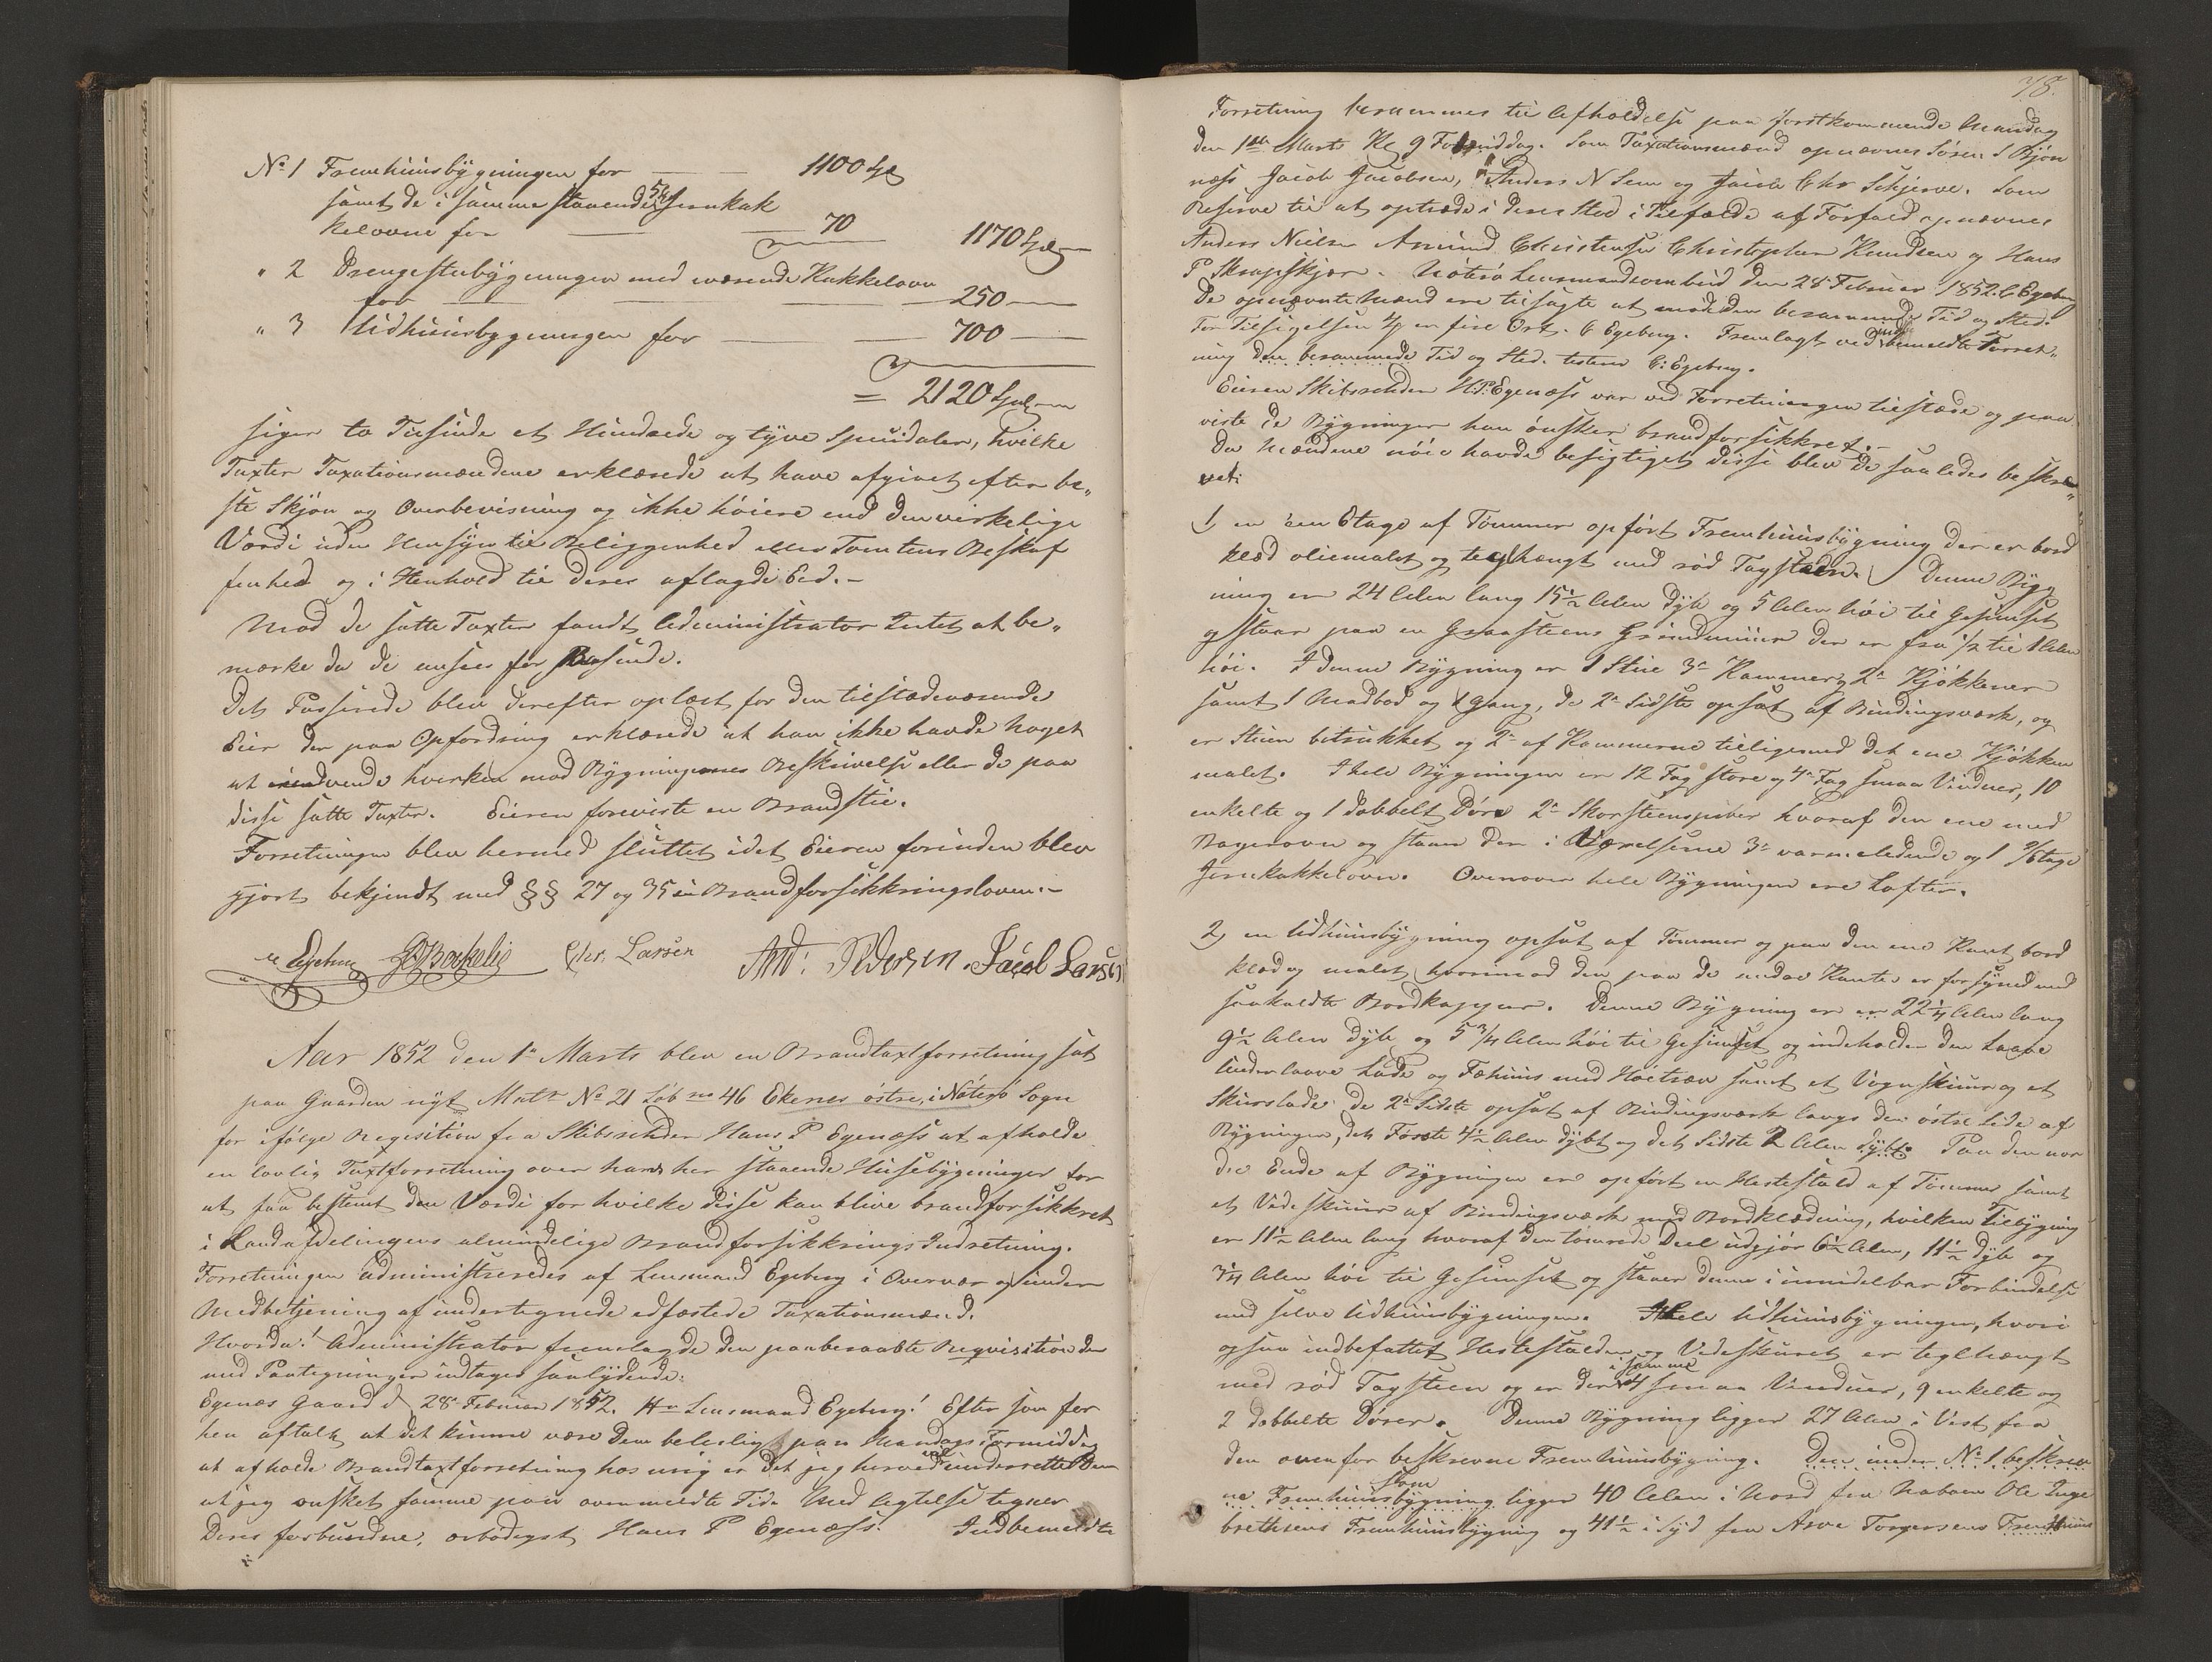 No 1 Fremhuusbygningen for — 1100 Spd
samt de i samme staaende 5 Jernkak
kelovne for — 70 1170 Spd
" 2 Drengestubygningen med værende Kakkelovn
for — 250 —
" 3 Udhuusbygningen for — 700 —
= 2120 Spd
siger to Tusinde et Hundrede og tyve Speciedaler, hvilke
Taxter Taxationsmændene erklærede at have afgivet efter be„
ste Skjøn og Overbeviisning og ikke høiere end den virkelige
Værdi uden Hensyn til Beliggenhed eller Tomtens Beskaf
fenhed og i Henhold til deres aflagde Eed.-
Mod de satte Taxter fandt Administrator Intet at be„
mærke da de ansees for passende.
Det Passerede blev derefter oplæst for den tilstedeværende
Eier der paa Opfordring erklærede at han ikke havde noget
at indvende hverken mod Bygningernes Beskrivelse eller de paa
disse satte Taxter. Eieren foreviste en Brandstie.
Forretningen blev hermed sluttet idet Eieren forinden blev
gjort bekjendt med §§ 27 og 35 i Brandforsikkringsloven.-
C Egeberg Chr. Larsen And: Pedersen. Jacob Larsen
Aar 1852 den 1ste Marts blev en Brandtaxtforretning sat
paa Gaarden nyt Matr No 21 Løb no 46 Ekenes østre, i Nøterø Sogn
for ifølge Reqvisition fra Skibsrheder Hans P Egenæss at afholde
en lovlig Taxtforretning over hans her staaende Huusebygninger for
at faa bestemt den Værdi for hvilke disse kan blive brandforsikkret
i Landafdelingens almindelige Brandforsikkrings Indretning.
Forretningen administreredes af Lensmand Egeberg i Overvær og under
Medbetjening af undertegnede edfæstede Taxationsmænd.
Hvorda! Administrator fremlagde den paaberaabte Reqvisition der
med Paategninger indtages saalydende:
Egenæs Gaard d 28 Februar 1852. Hr Lensmand Egeberg! Efter som for
hen aftalt at det kunne være Dem beleiligt paa Mandags Formiddag
at afholde Brandtaxtforretning hos mig er det jeg herved underretter Dem
at jeg ønsker samme paa ovenmeldte Tid. Med Agtelse tegner
Deres forbundne, ærbødigst Hans P Egenæss. Indbemeldte
78.
Forretning berammes til Afholdelse paa førstkommende Mandag
den 1ste Marts Kl 9 Formiddag. Som Taxationsmænd opnævnes Søren S Bjøn
næss Jacob Jacobsen, Anders N Sem og Jacob Chr Schjerve. Som
Reserve til at optræde i deres Sted i Tilfælde af Forfald opnævnes
Anders Nielsen Amund Christensen Christopher Knudsen og Hans
P Skrapskjær. Nøterø Lensmandsombud den 28 Februar 1852. C Egeberg
De opnævnte Mænd ere tilsagte at møde den berammede Tid og Sted.
For Tilsigelsen 4/ er fire Ort. C Egeberg. Fremlagt ved indbemeldte Forret„
ning den berammede Tid og Sted. testerer C: Egeberg.
Eieren Skibsrheder H.P. Egenæss var ved Forretningen tilstæde og paa
viste de Bygninger han ønsker brandforsikkret.-
Da Mændene nøie havde besigtiget disse blev de saaledes beskre„
vet:
1, en een Etage af Tømmer opført Fremhuusbygning der er bord
klæd oliemalet og teglhængt med rød Tagsteen. Denne Byg
ning er 24 Alen lang 15½ Alen dyb og 5 Alen høi til Gesimset
og staar paa en Graasteens Grundmuur der er fra ½ til 1 Alen
høi. I denne Bygning er 1 Stue 3de Kammers 2de Kjøkkener
samt 1 Madbod og 1 Gang, de 2de Sidste opsat af Bindingsværk, og
er Stuen betrukket og 2de af Kammerne tilligemed det ene Kjøkken
malet. I hele Bygningen er 12 Fag store og 4re Fag smaa Vinduer, 10
enkelte og 1 dobbelt Døre 2de Skorsteenspiber hvoraf den ene med
Bagerovn og staar der i Værelserne 3de varmeledende og 1 2/Etage
Jernkakkelovn. Ovenover hele Bygningen ere Lofter.
2, en Udhuusbygning opsat af Tømmer og paa den ene Kant bord
klæd og malet hvorimod den paa de andre Kanter er forsynet med
saakaldte Bordkapper. Denne Bygning er 22¼ Alen lang
9½ Alen dyb og 5¾ Alen høi til Gesimset og indeholder den Laave
Underlaave Lade og Fæhuus med Høetræv samt et Vognskuur og et
Skurslade: de 2de Sidste opsat af Bindingsværk langs den østre Side af
Bygningen, det Første 4½ Alen dybt og det Sidste 2 Alen dybt. Paa den nor
dre Ende af Bygningen er opført en Hestestald af Tømmer samt
et Vedeskuur af Bindingsværk med Bordklædning, hvilken Tilbygning
er 11½ Alen lang hvoraf den tømrede Deel udgjør 6½ Alen, 11½ dyb og
3¼ Alen høi til Gesimset og staaer denne i umiddelbar Forbindelse
med selve Udhuusbygningen. Hele Udhuusbygningen, hvori
ogsaa indbefattet Hestestalden og Vedeskuret er teglhængt
med rød Tagsteen og er der i samme 4 smaa Vinduer, 9 enkelte og
2 dobbelte Dører. Denne Bygning ligger 27 Alen i Vest fra
den ovenfor beskrevne Fremhuusbygning. Den under No 1 beskrev
ne Fremhuusbygning som ligger 40 Alen i Nord fra Naboen Ole Inge
brethsens Fremhuusbygning og 41½ i Syd fra Arve Torgersens Fremhuus